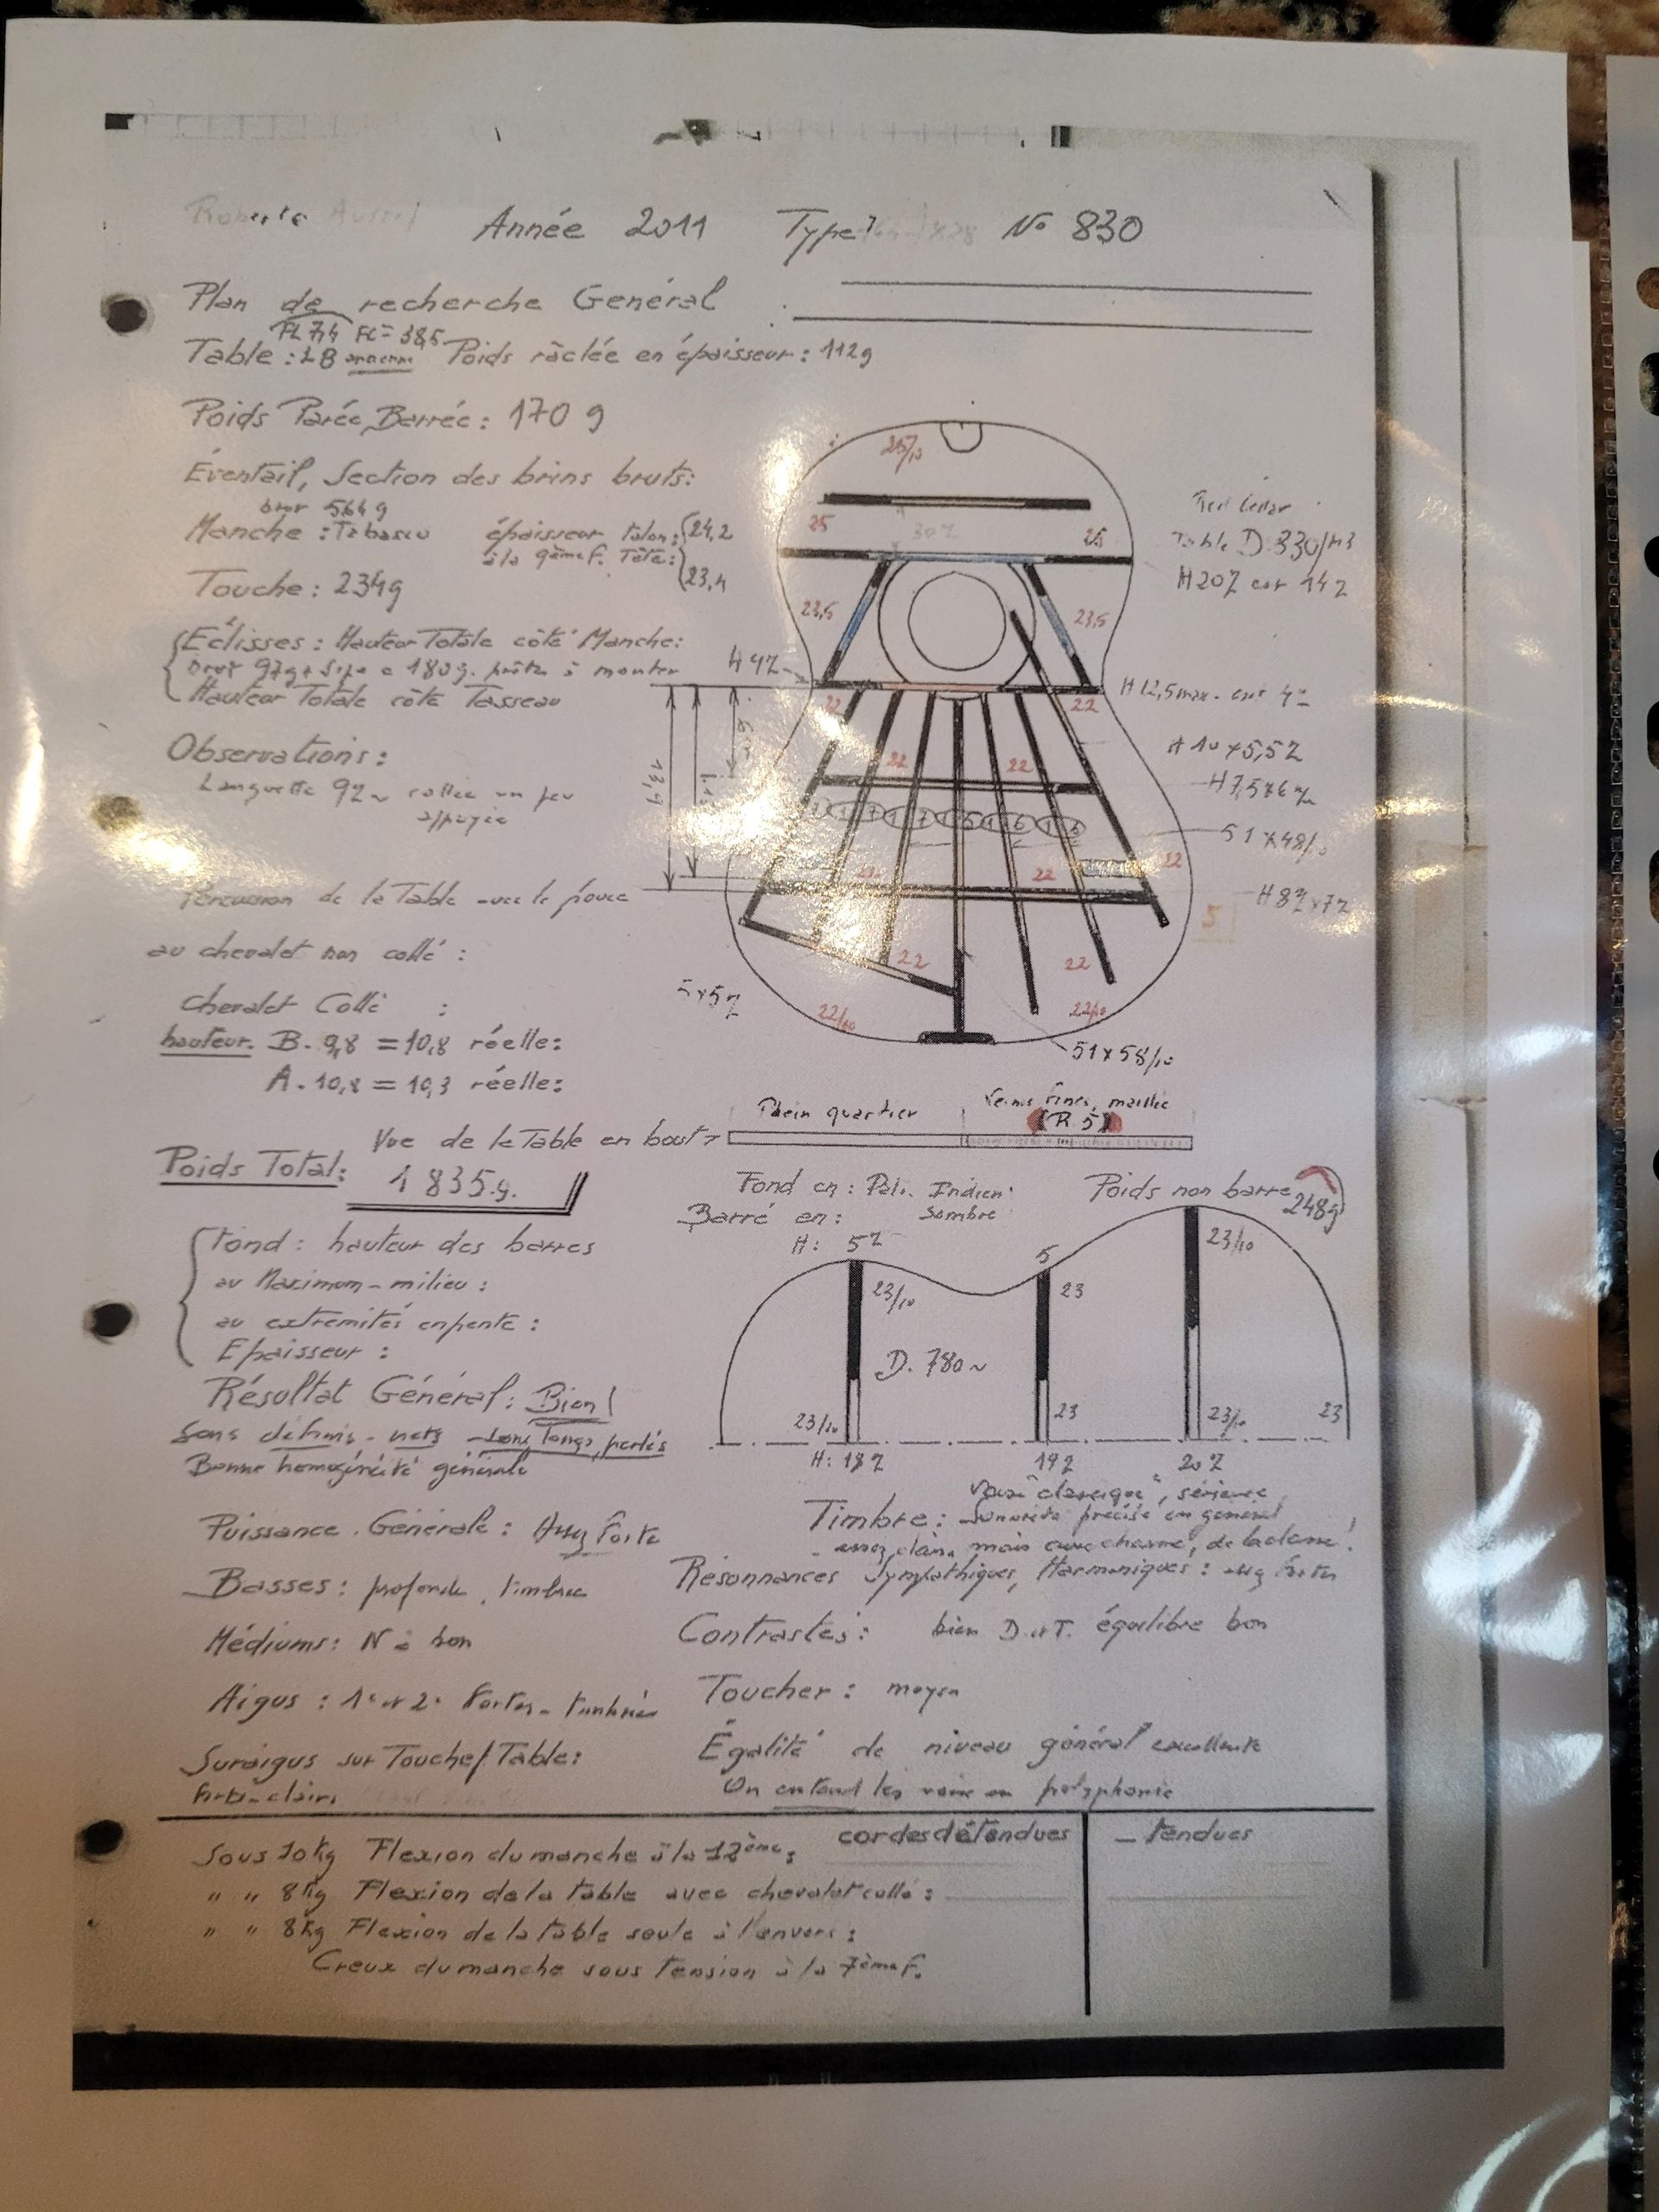 Roberto Aussel Année 2011 Type N° 830
Plan de recherche Genéral
FL 74 FC = 38,5
Table : LB ancienne Poids râclée en épaisseur : 112g
Poids Parée, Barrée : 170 g
Éventail, Section des brins bruts :
brut 564 g
Manche : Tabasco épaisseur talon : 24,2
à la 9ème F. Tête : 23,4
Touche : 234g
Éclisses : Hauteur Totale côté Manche :
prêtes à monter
Hauteur Totale côté Tasseau
Observations :
Languette collée un peu
appuyée
Percussion de la Table avec le pouce
au chevalet non collé :
Chevalet Collé :
hauteur. B. 9,8 = 10,8 réelle :
A. 10,8 = 10,3 réelle :
Vue de la Table en bout
Poids Total : 1 835 g.
Fond : hauteur des barres
au Maximum - milieu :
au extremités en pente :
Epaisseur :
Résultat Général : Bien !
Sons définis - nets - sons longs, perlés
Bonne homogénéité générale
Puissance Générale : Assez Forte
Basses : profonde, timbrée
Médiums : bon
Aigus : 1e et 2e Fortes - timbrées
Suraigus sur Touche/Table :
Forts - clairs
25/10
25
25
23,5
23,5
4 42
22
22
22
22
13,9
22
22
22
22
22/10
22/10
5
5x5
Red Cedar
Table D. 330/M3
H 20 142
H 12,5 max.
H 10 x 5,5
H 7,5 x 6
51 x 48/10
H 8 x 7
51 x 58/10
Plein quartier Veines fines, maillée
(R. 5)
Fond en : Pali. Indien Poids non barré 248g
Barré en : Sombre
H : 5 5
23/10 23 23/10
D. 780
23/10 23 23/10 23
H : 18 19 20
Voix "classique", sérieuse
Timbre : Sonorité précise en général
assez clair, mais avec charme, de la classe !
Résonnances Sympathiques, Harmoniques : assez fortes
Contrastes : bien D. et T. équilibre bon
Toucher : moyen
Égalité de niveau général excellente
On entend les voix en polyphonie
cordes détendues - tendues
Sous 10 kg Flexion du manche à la 12ème :
" " 8 Kg Flexion de la table avec chevalet collé :
" " 8 Kg Flexion de la table seule à l'envers :
Creux du manche sous tension à la 7ème F.